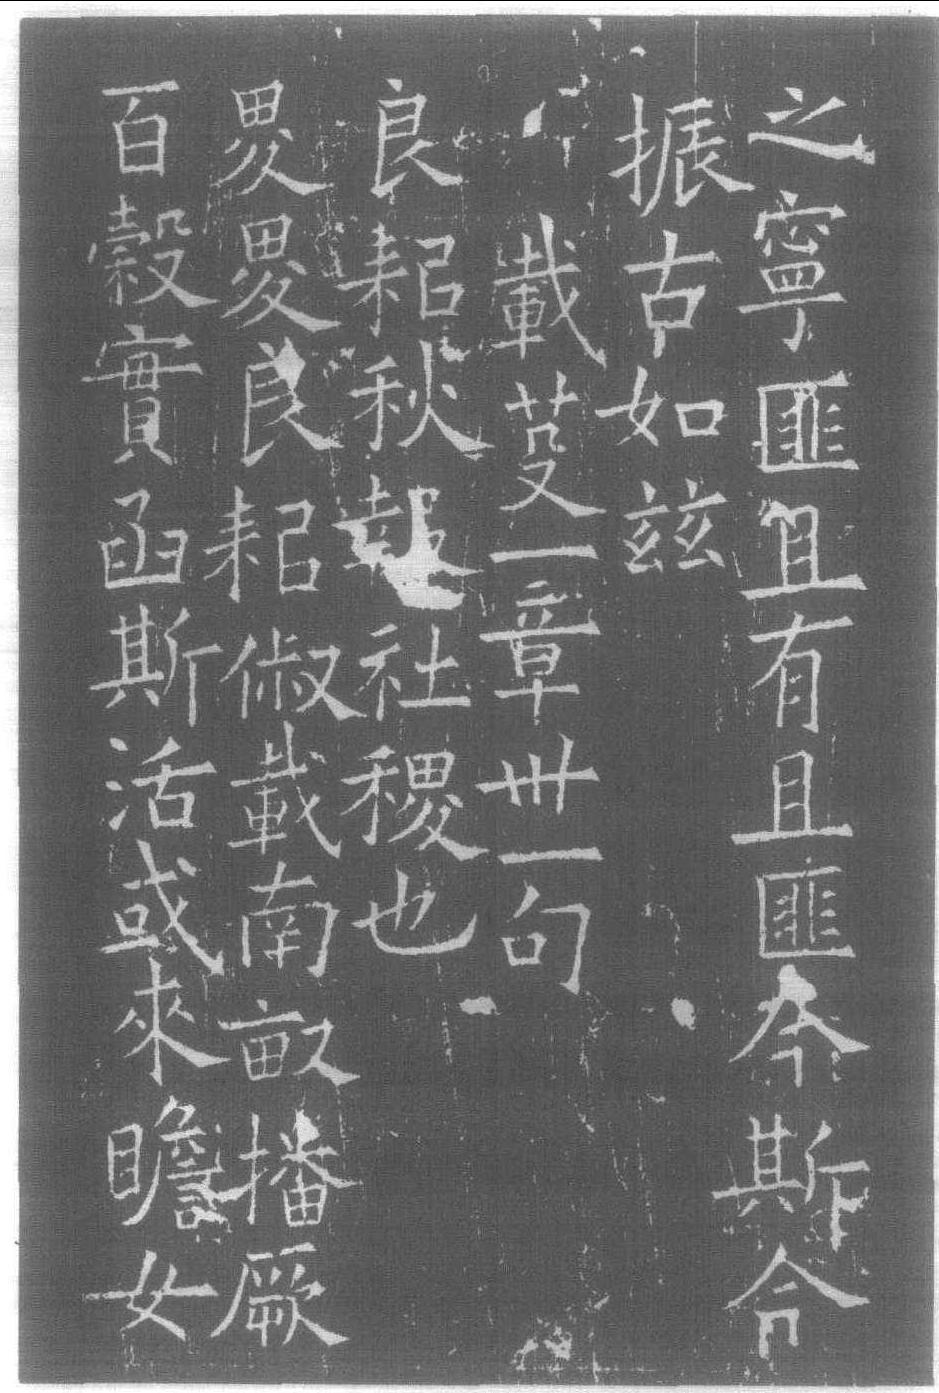 之寧匪且有且匪今斯今
振古如兹
載芟一章卅一句
良耜秋報社稷也
畟畟良耜俶載南畝播厥
百穀實函斯活或來瞻女